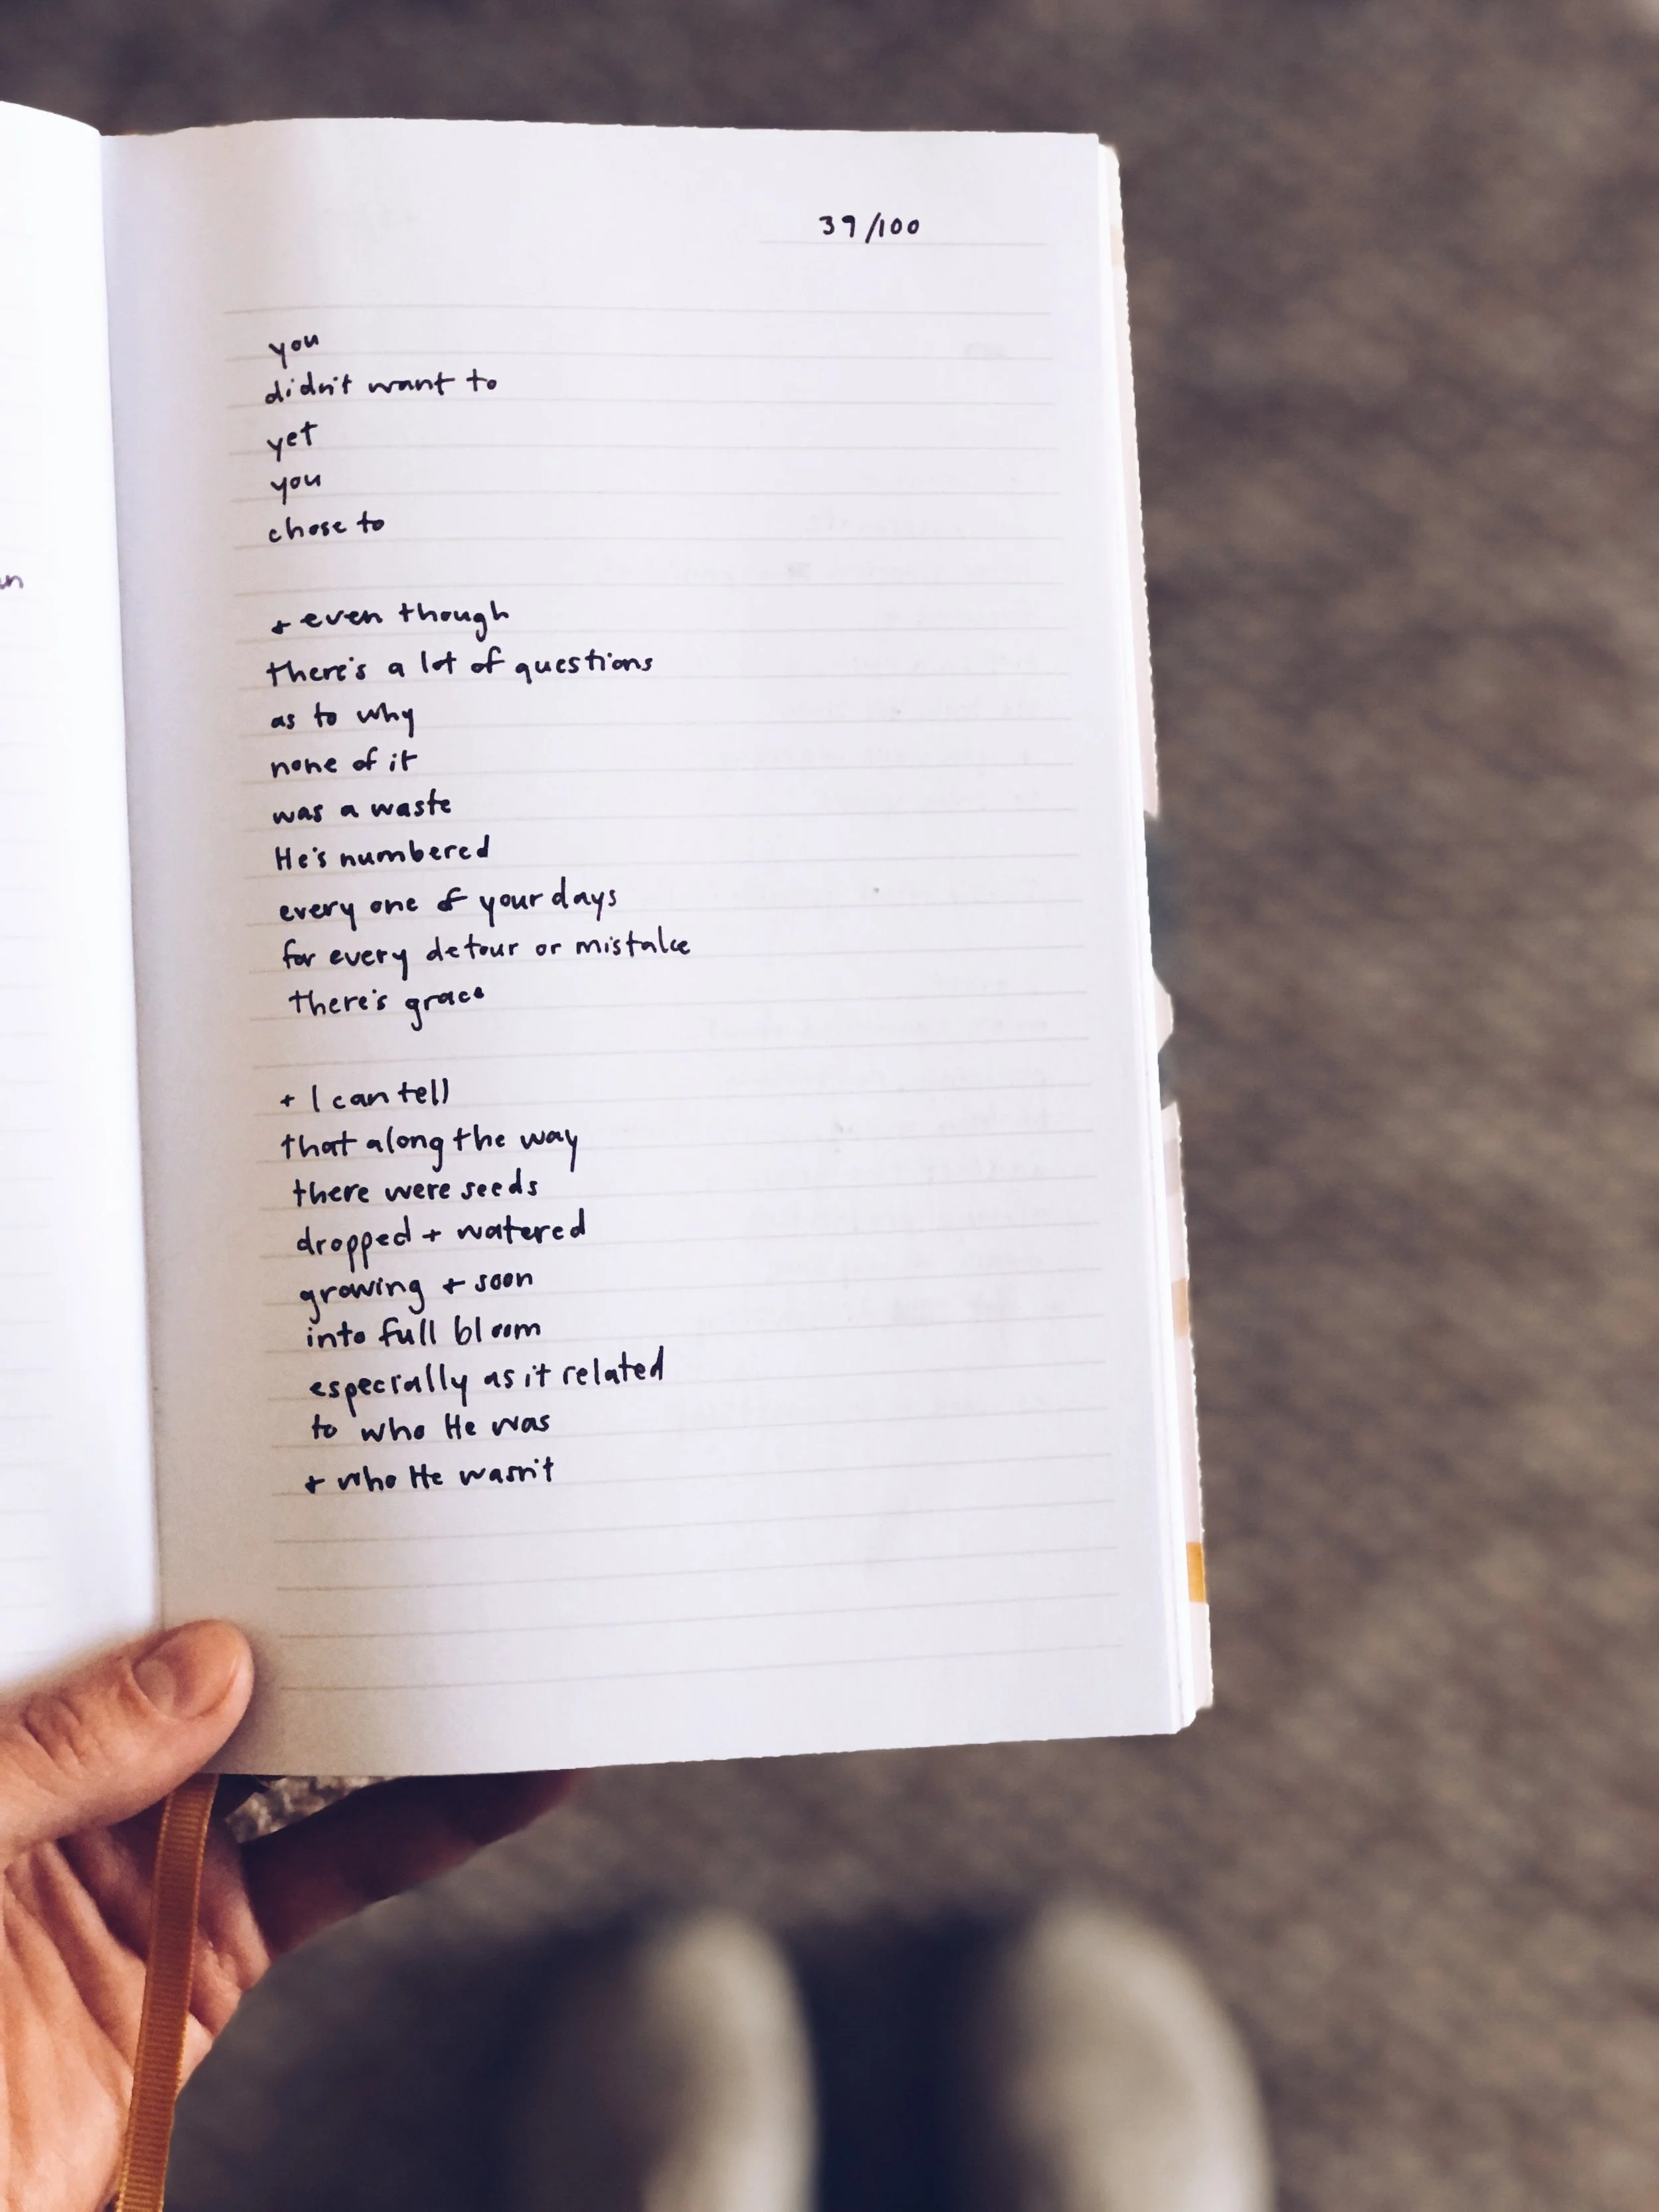 39/100
you
didn't want to
yet
you
chose to
+ even though
there's a lot of questions
as to why
none of it
was a waste
He's numbered
every one of your days
for every detour or mistake
there's grace
+ I can tell
that along the way
there were seeds
dropped + watered
growing + soon
into full bloom
especially as it related
to who He was
+ who He wasn't